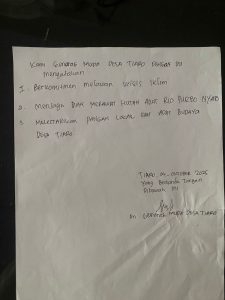 Kami Generasi Muda Desa Tiaro Dengan Ini
Menyatakan
1. Berkomitmen melawan krisis Iklim
2. Menjaga DAN MERAWAT HUTAN ADAT RIO
3. Melestarikan PANGAN LOKAL DAN ADAT BUDAYA
DESA TIARO
TIARO, 04, OKTOBER 2025
Yang Bertanda Tangan
Dibawah INI
an GENERASI MUDA DESA TIARO